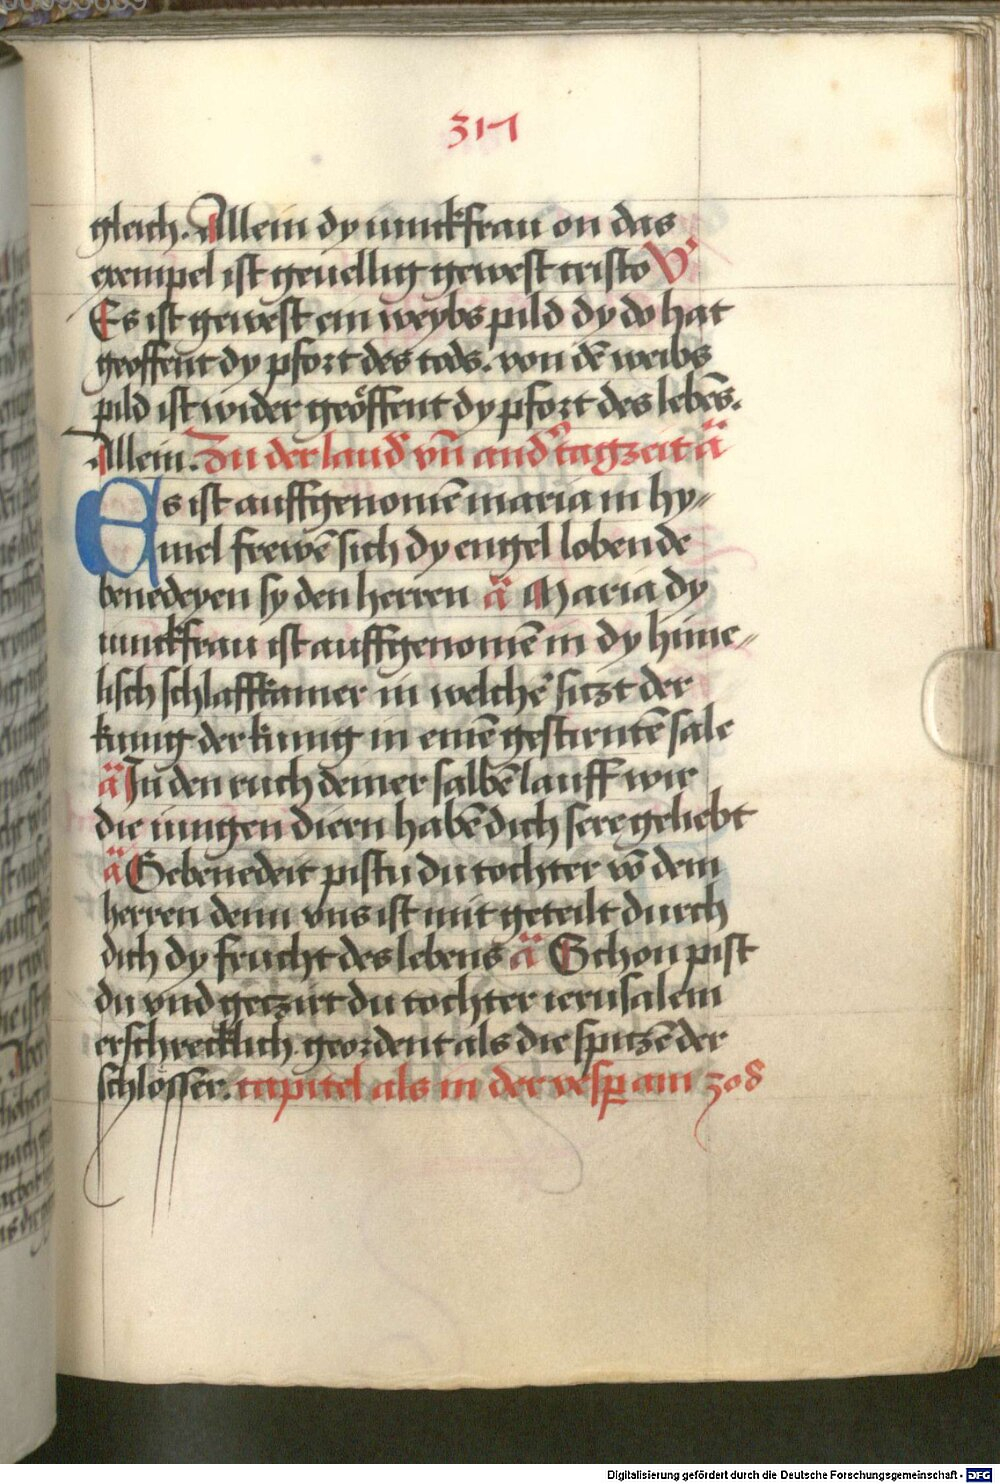 317
gleich. Allein dy iunckfrau on das
exempel ist geuellig gewest cristo V
Es ist gewest ein weybs pild dy do hat
geoffent dy pfort des tods. von dē weibs
pild ist wider geöffent dy pfort des lebēs.
Allein. Zu der laud vn̄ and tagzeit ä
Es ist auffgenomē maria in hy-
mel frewē sich dy engel lobende
benedeyen sy den herren ä Maria dy
iunckfrau ist auffgenomē in dy hime-
lisch schlaffkamer in welchē siczt der
kunig der kunig in einē gestirntē sale
ä In den ruch deiner salbē lauff wir
die iungen diern habē dich sere geliebt
ä Gebenedeit pistu du tochter vō dem
herren denn vns ist mit geteilt durch
dich dy frucht des lebens ä Schon pist
du vnd geczirt du tochter ierusalem
erschrecklich geordent als die spiczē der
schlösser. capitel als in der vesp am 208
Digitalisierung gefördert durch die Deutsche Forschungsgemeinschaft - DFG